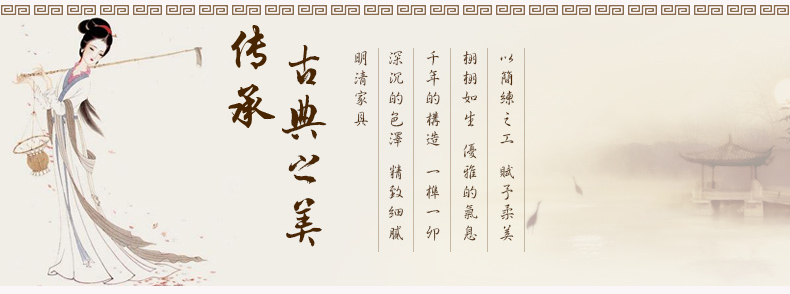 传承
古典之美
以簡練之工 賦予柔美
栩栩如生 優雅的氣息
千年的構造 一榫一卯
深沉的色澤 精致细膩
明清家具